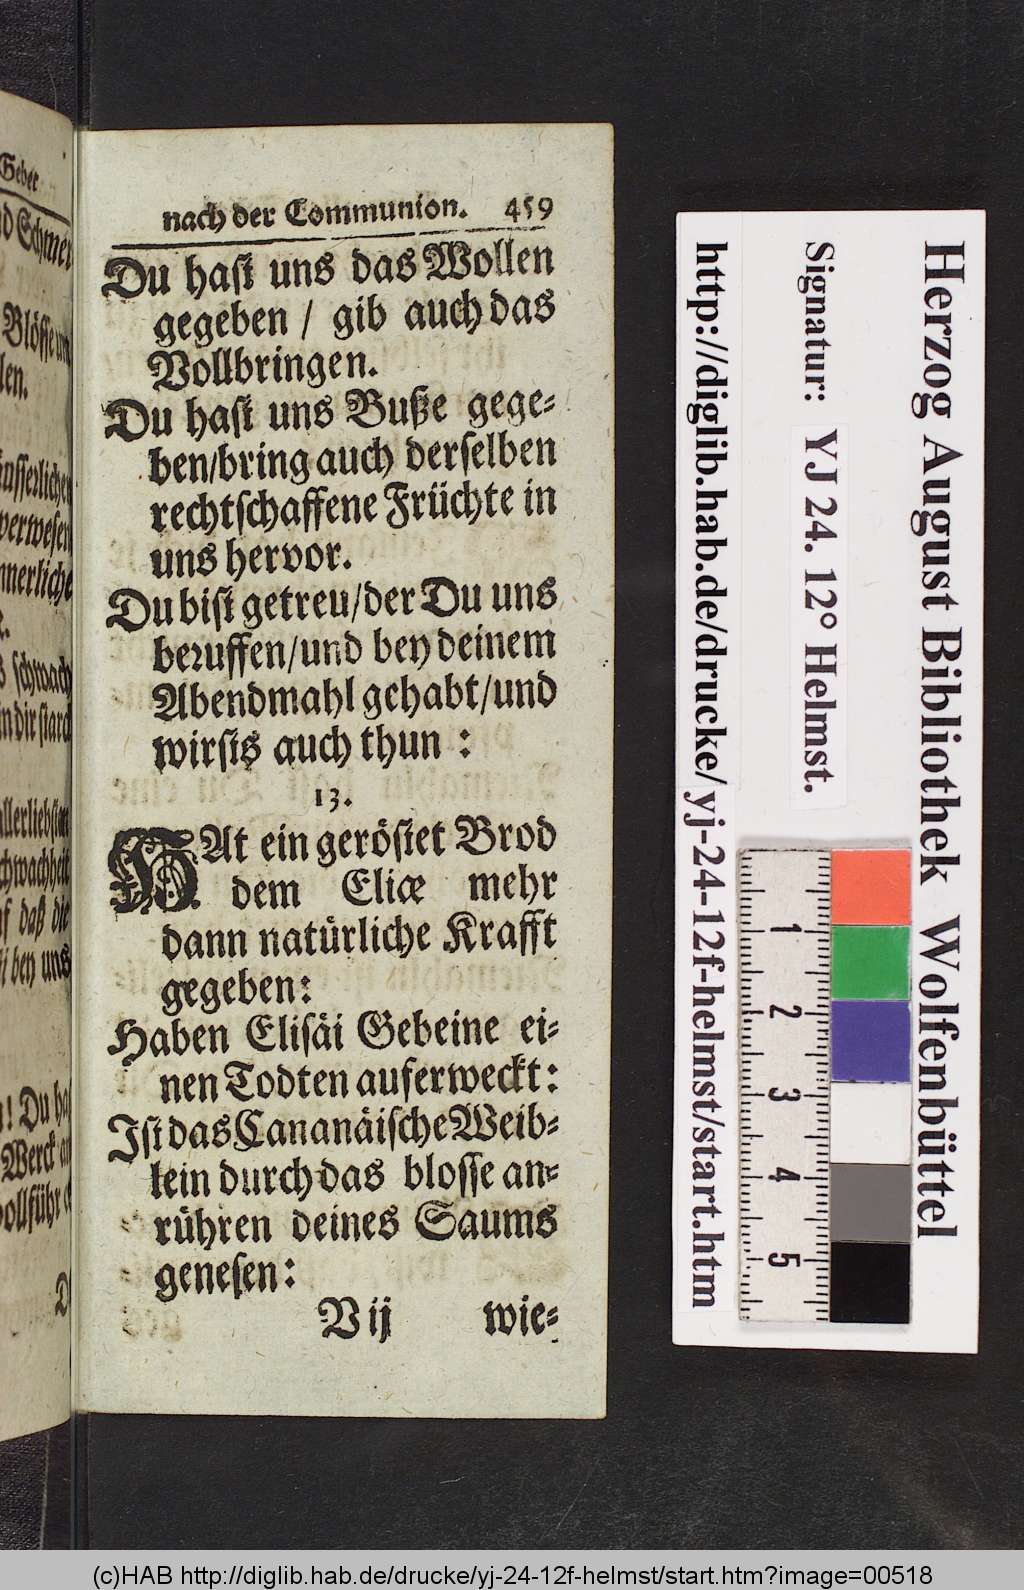 nach der Communion. 459
Du hast uns das Wollen
gegeben / gib auch das
Vollbringen.
Du hast uns Buße gege⸗
ben/bring auch derselben
rechtschaffene Früchte in
uns hervor.
Du bist getreu/der Du uns
beruffen/und bey deinem
Abendmahl gehabt/und
wirsts auch thun :
13.
HAt ein geröstet Brod
dem Eliæ mehr
dann natürliche Krafft
gegeben:
Haben Elisäi Gebeine ei⸗
nen Todten auferweckt:
Ist das Cananäische Weib⸗
lein durch das blosse an⸗
rühren deines Saums
genesen:
V ij wie⸗
Schmer
Blösse
len.
schwach
in dir starck
daß die
bey uns
Du
Werck
Herzog August Bibliothek Wolfenbüttel
Signatur: YJ 24. 12° Helmst.
http://diglib.hab.de/drucke/yj-24-12f-helmst/start.htm
1
2
3
4
5
(c)HAB http://diglib.hab.de/drucke/yj-24-12f-helmst/start.htm?image=00518